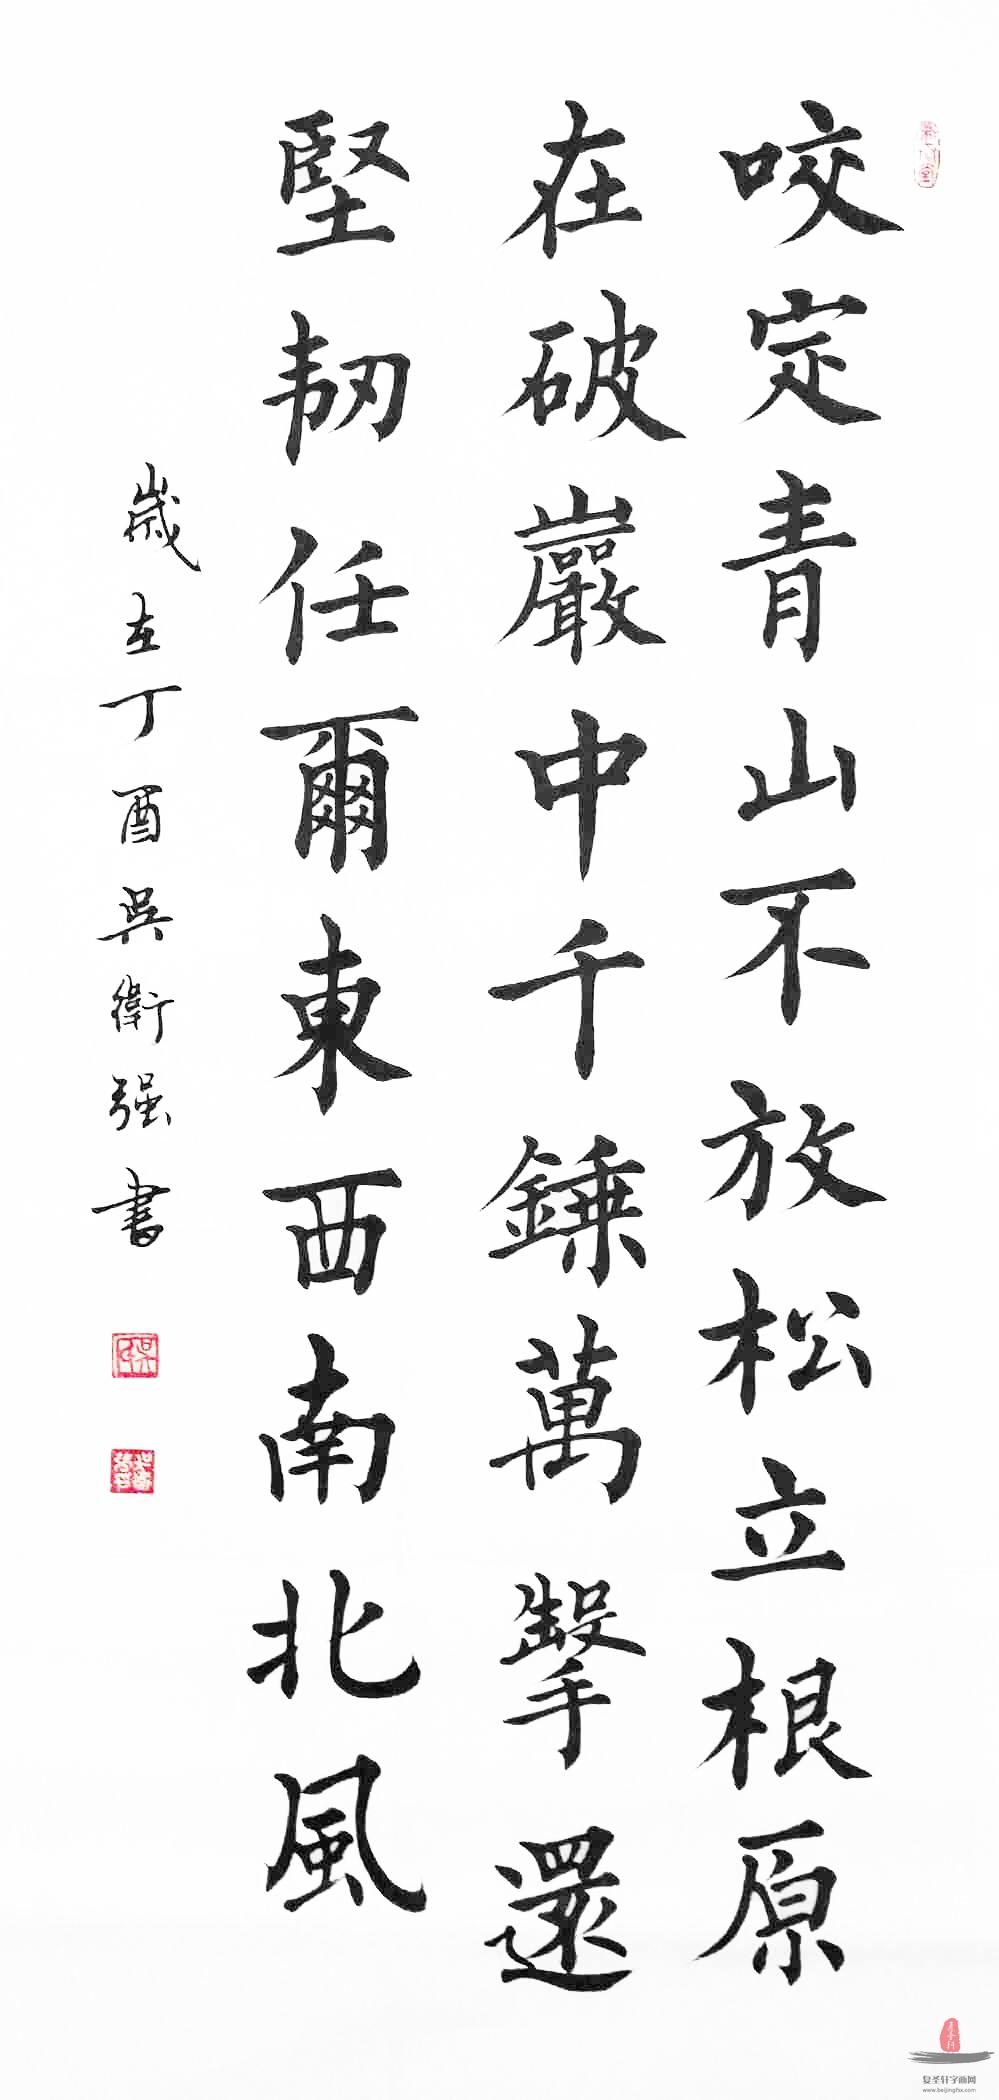 咬定青山不放松立根原
在破巖中千錘萬擊還
堅韧任爾東西南北風
歲在丁酉吳衛强書
复圣轩字画网
www.beijingfsx.com